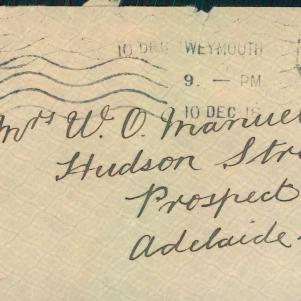 10 DEC WEYMOUTH
9. — PM
10 DEC 16
Mrs W. O. Manuel
Hudson Stre
Prospect
Adelaide.